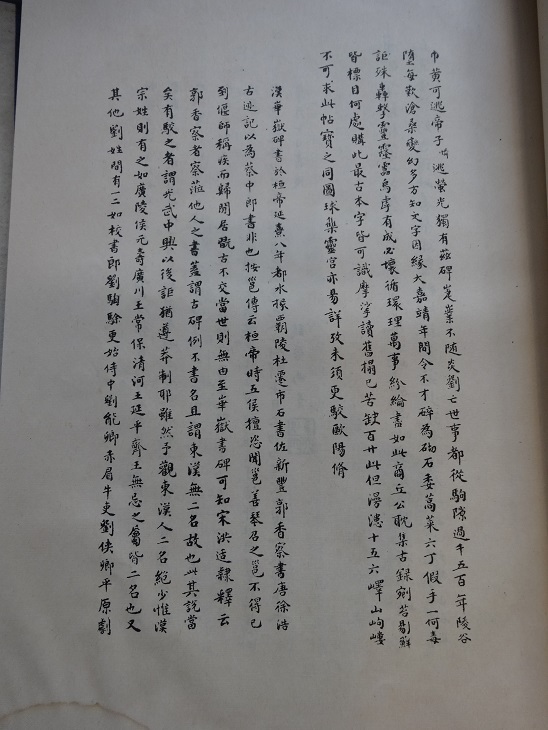 巾黄可逃帝子世逃螢光獨有茲碑嵬業不随炎劉亡世事都從駒隙過千五百年陵谷
堕每歎滄桑變幻多方知文字因緣大嘉靖年間令不才碎為砌石委蒿萊六丁假手一何毒
詎殊轟擊靈霳需烏虖有成必壞循環理萬事紛綸盡如此齋丘公耽集古録剜苔剔蘚
皆標目何處購此最古本字皆可識摩挲讀舊搨已苦缺百廿此但漫漶十五六嶧山岣嶁
不可求此帖寶之同圖球集靈宫亦易詳攷未須更駮歐陽脩
漢華嶽碑書於桓帝延熹八年都水掾霸陵杜遷市石書佐新豐郭香察書唐徐浩
古迹記以為蔡中郎書非也按邕傳云桓帝時五侯擅恣聞邕善琴召之邕不得已
到偃師稱疾而歸閒居翫古不交當世則無由至華嶽書碑可知宋洪适隸釋云
郭香察者察蒞他人之書蓋謂古碑例不書名且謂東漢無二名故也此其説當
矣有駮之者謂光武中興以後詎猶遵莽制耶雖然予觀東漢人二名絶少惟漢
宗姓則有之如廣陵侯元壽廣川王常保清河王延平齊王無忌之屬皆二名也又
其他劉姓間有一二如校書郎劉騊駼更始侍中劉能卿赤眉牛吏劉俠卿平原劇